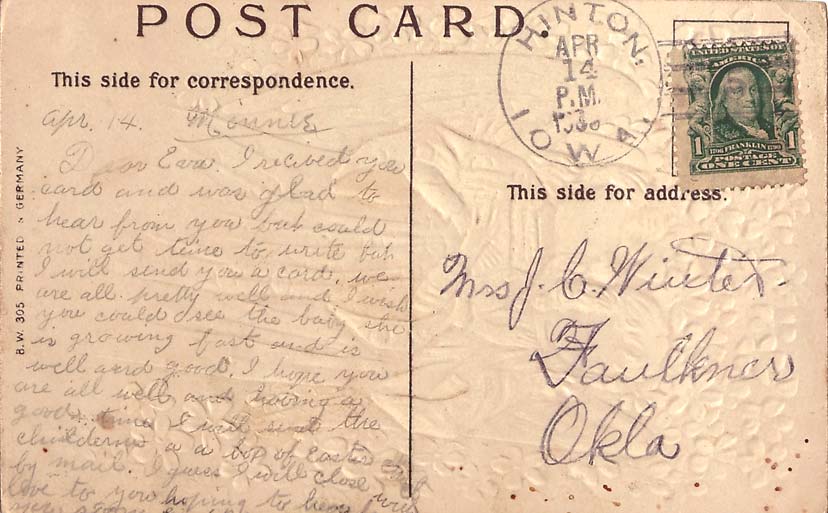 POST CARD.
This side for correspondence.
HINTON,
APR
14
P.M.
IOWA.
UNITED STATES OF
AMERICA
1 1
1706 FRANKLIN 1790
POSTAGE
ONE CENT
This side for address.
B.W. 305 PRINTED IN GERMANY
Apr. 14. Minnie
Dear Eva. I recived you
card and was glad to
hear from you but could
not get time to write but
I will send you a card. we
are all pretty well and I wish
you could see the baby she
is growing fast and is
well and good. I hope you
are all well and having a
good time I will sent the
childerns a a box of Easter
by mail. I guess I will close
love to you hoping to hear
you soon
Mrs J. C. Winter.
Faulkner
Okla